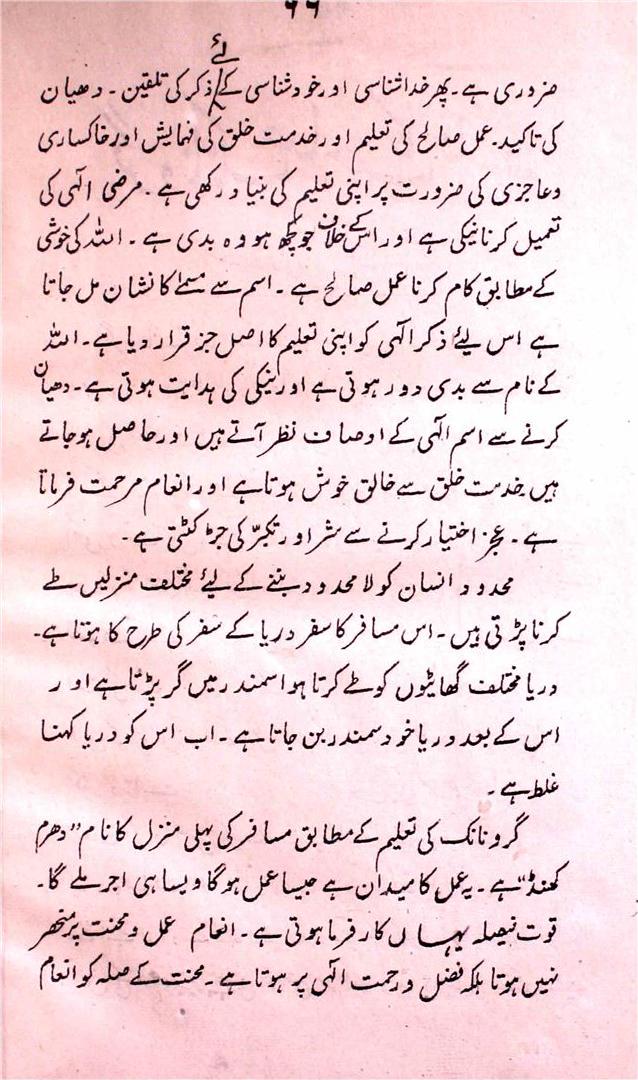 ۶۶
ضروری ہے۔ پھر خدا شناسی اور خود شناسی کے لئے ذکر کی تلقین۔ دھیان
کی تاکید۔ عمل صالح کی تعلیم اور خدمت خلق کی فہمایش اور خاکساری
و عاجزی کی ضرورت پر اپنی تعلیم کی بنیاد رکھی ہے۔ مرضی الٰہی کی
تعمیل کرنا نیکی ہے اور اس کے خلاف جو کچھ ہو وہ بدی ہے۔ اللہ کی خوشی
کے مطابق کام کرنا عمل صالح ہے۔ اسم سے مسمےٰ کا نشان مل جاتا
ہے اس لیئے ذکر الٰہی کو اپنی تعلیم کا اصل جز قرار دیا ہے۔ اللہ
کے نام سے بدی دور ہوتی ہے اور نیکی کی ہدایت ہوتی ہے۔ دھیان
کرنے سے اسم الٰہی کے اوصاف نظر آتے ہیں اور حاصل ہو جاتے
ہیں خدمت خلق سے خالق خوش ہوتا ہے اور انعام مرحمت فرماتا
ہے۔ عجز اختیار کرنے سے شر اور تکبّر کی جڑ کٹتی ہے۔
محدود انسان کو لا محدود بننے کے لیئے مختلف منزلیں طے
کرنا پڑتی ہیں۔ اس مسافر کا سفر دریا کے سفر کی طرح کا ہوتا ہے۔
دریا مختلف گھاٹیوں کو طے کرتا ہوا سمندر میں گر پڑتا ہے اور
اس کے بعد دریا خود سمندر بن جاتا ہے۔ اب اس کو دریا کہنا
غلط ہے۔
گرو نانک کی تعلیم کے مطابق مسافر کی پہلی منزل کا نام "دھرم
کھنڈ" ہے۔ یہ عمل کا میدان ہے جیسا عمل ہو گا ویسا ہی اجر ملے گا۔
قوت فیصلہ یہاں کار فرما ہوتی ہے۔ انعام عمل و محنت پر منحصر
نہیں ہوتا بلکہ فضل و رحمت الٰہی پر ہوتا ہے۔ محنت کے صلہ کو انعام